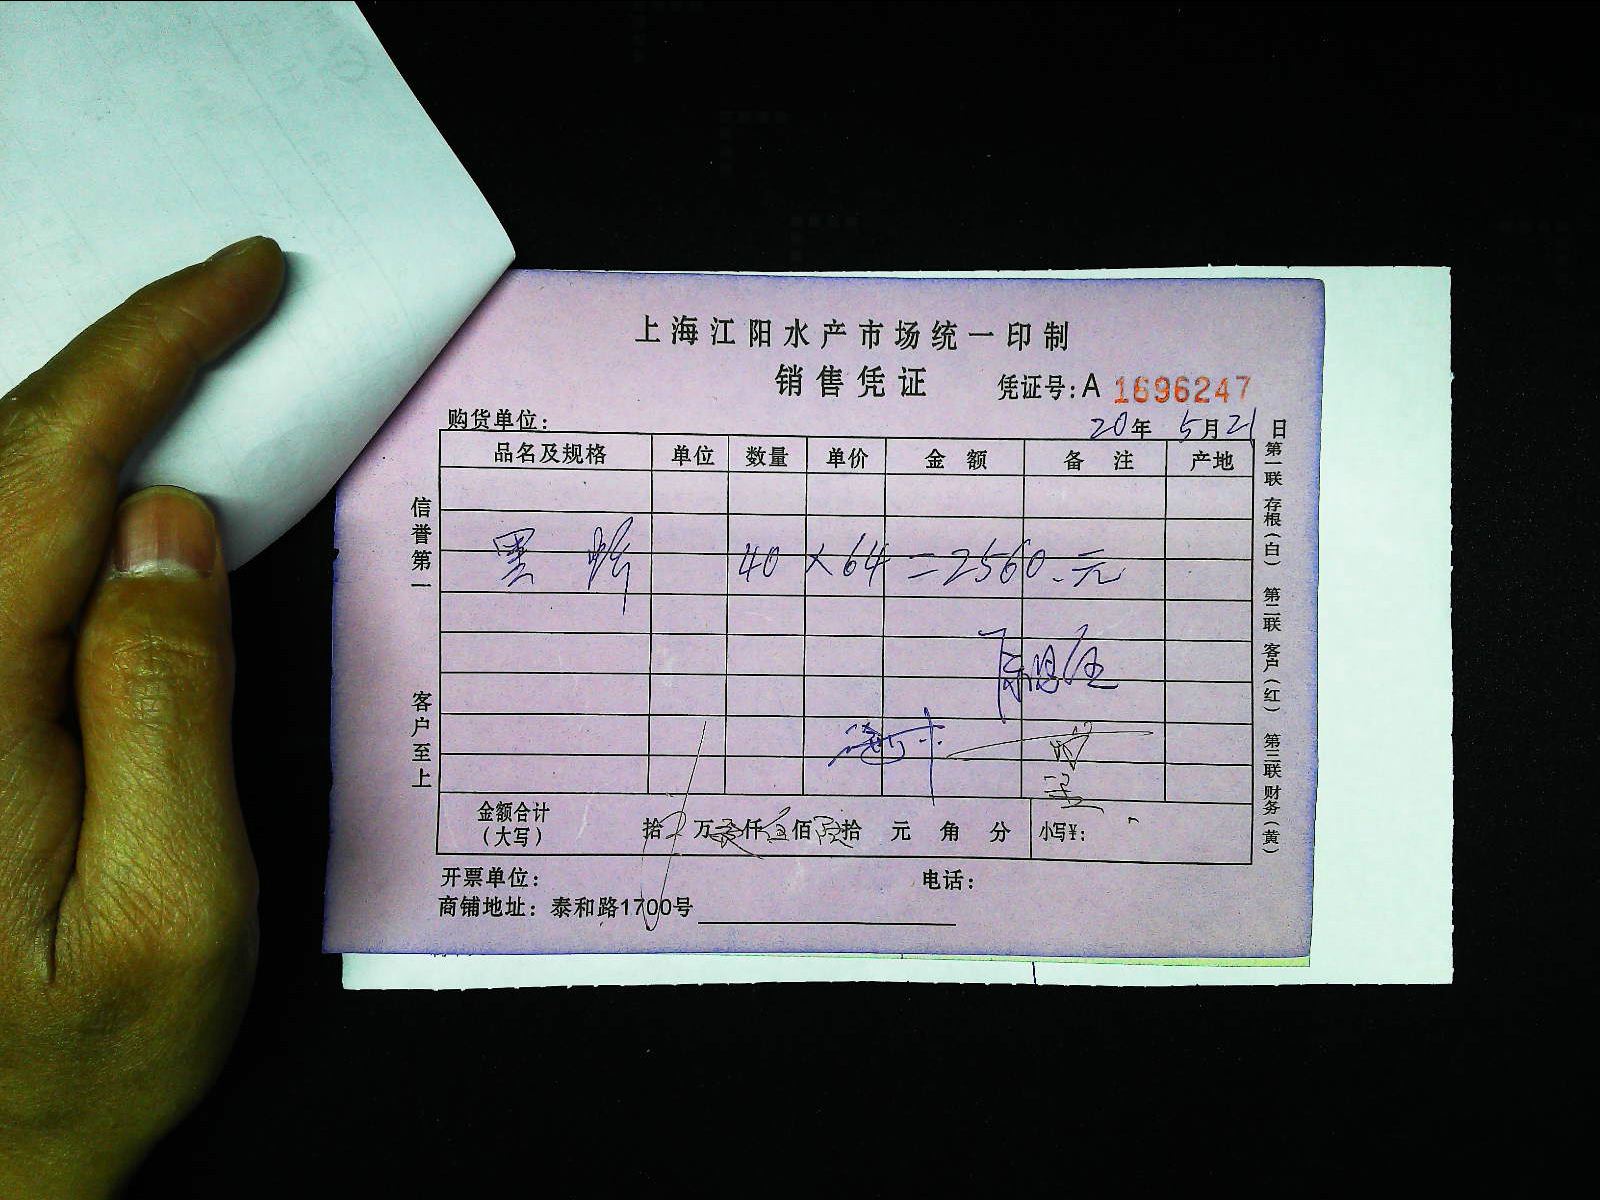 上海江阳水产市场统一印制
销售凭证
凭证号:A 1696247
购货单位:
20年 5月21日
品名及规格 单位 数量 单价 金 额 备 注 产地
黑 40 × 64 = 2560.元
信誉第一 客户至上
第一联 存根(白) 第二联 客户(红) 第三联 财务(黄)
金额合计
(大写)
拾 万 仟 伍 佰 陆 拾 元 角 分 小写¥:
开票单位: 电话:
商铺地址: 泰和路1700号